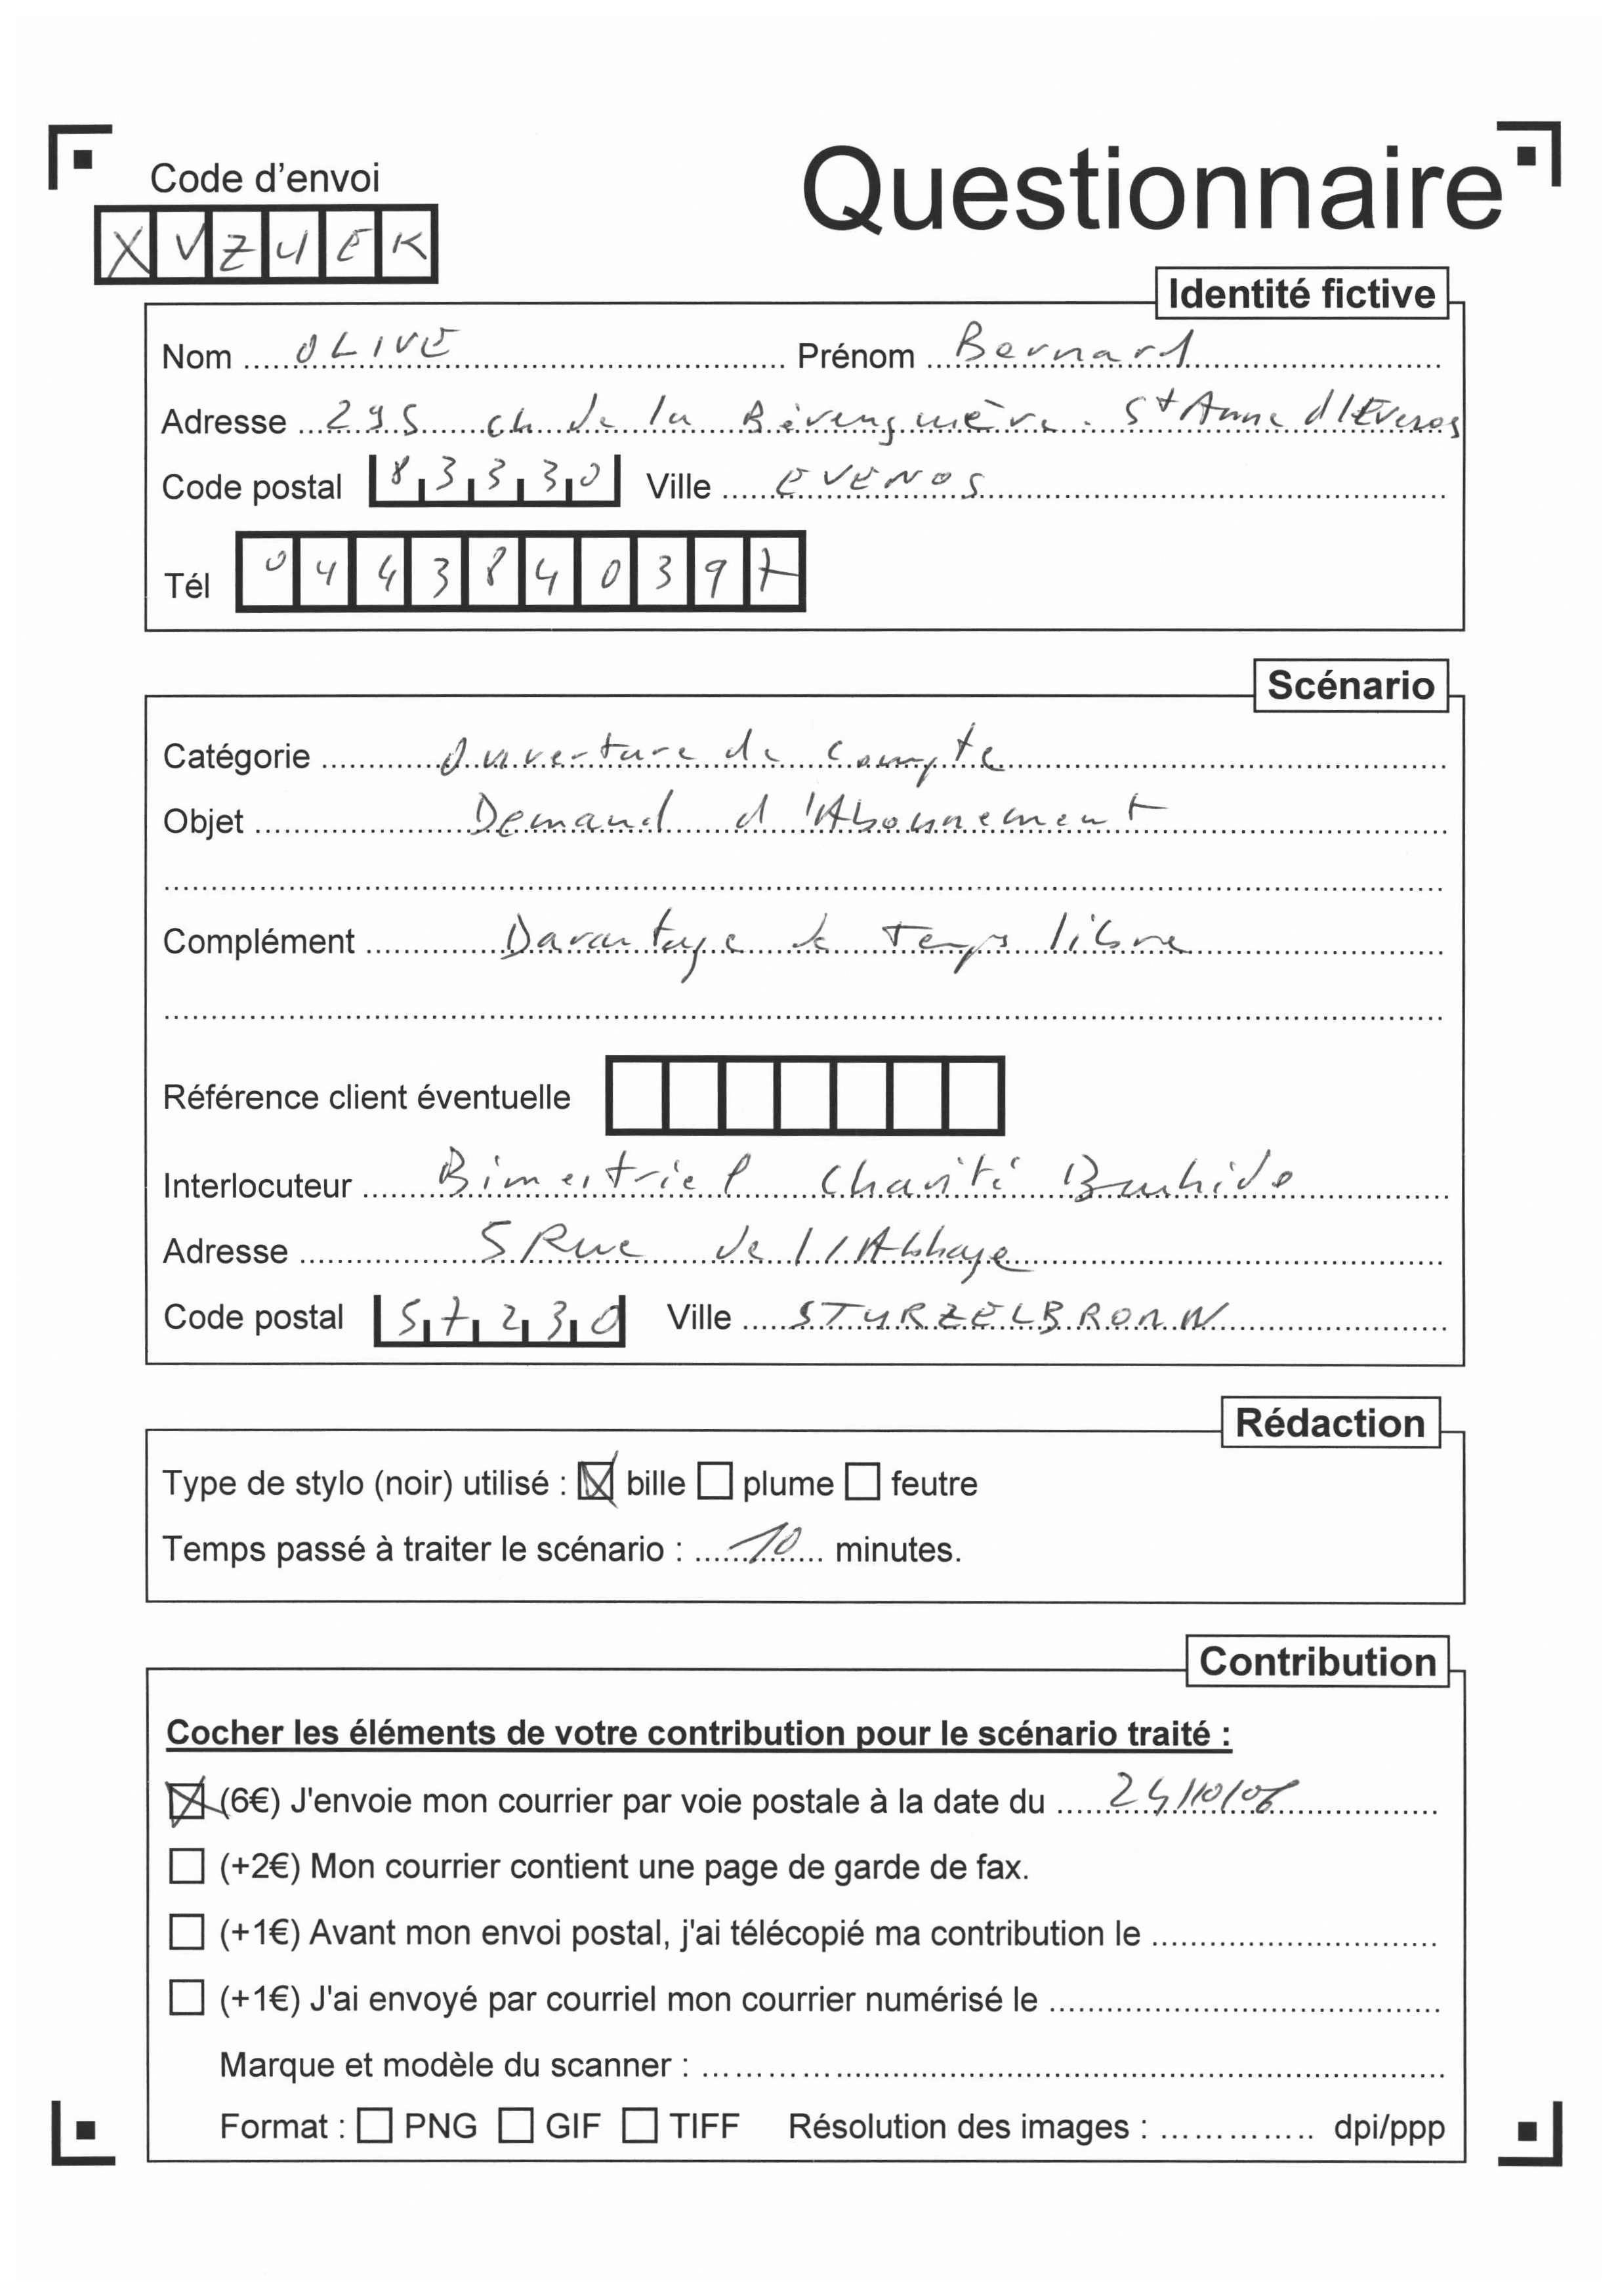 Code d'envoi
Questionnaire
XVZ4EK
Identité fictive
Nom OLIVE Prénom Bernard
Adresse 295 ch de la Bérenguière. St Anne d'Evenos
Code postal 83330 Ville EVENOS
Tél 0443840397
Scénario
Catégorie Ouverture de compte
Objet Demand d'Abonnement
Complément Davantage de temps libre
Référence client éventuelle
Interlocuteur Bimestriel Charité
Adresse 5 Rue de l'Abbaye
Code postal 57230 Ville STURZELBRONN
Rédaction
Type de stylo (noir) utilisé : bille plume feutre
Temps passé à traiter le scénario : 10 minutes.
Contribution
Cocher les éléments de votre contribution pour le scénario traité :
(6€) J'envoie mon courrier par voie postale à la date du 24/10/06
(+2€) Mon courrier contient une page de garde de fax.
(+1€) Avant mon envoi postal, j'ai télécopié ma contribution le
(+1€) J'ai envoyé par courriel mon courrier numérisé le
Marque et modèle du scanner :
Format : PNG GIF TIFF Résolution des images : dpi/ppp